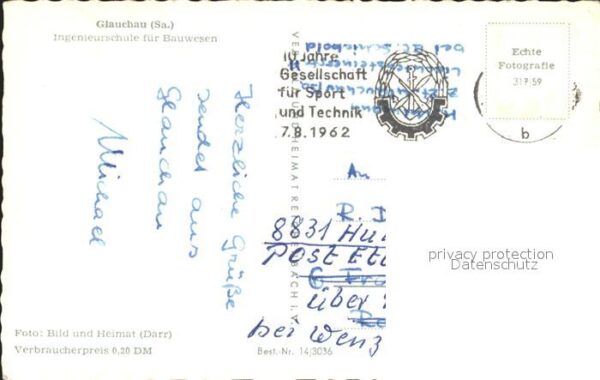 Glauchau (Sa.)
Ingenieurschule für Bauwesen
Herzliche Grüße
sendet aus
Glauchau
Michael
10 Jahre
Gesellschaft
für Sport
und Technik
7.8.1962
Echte
Fotografie
317/59
b
An
R. D
8831 Hu
POST Eta
über
bei Wenz
privacy protection
Datenschutz
Foto: Bild und Heimat (Darr)
Verbraucherpreis 0,20 DM
Best.-Nr. 14/3036